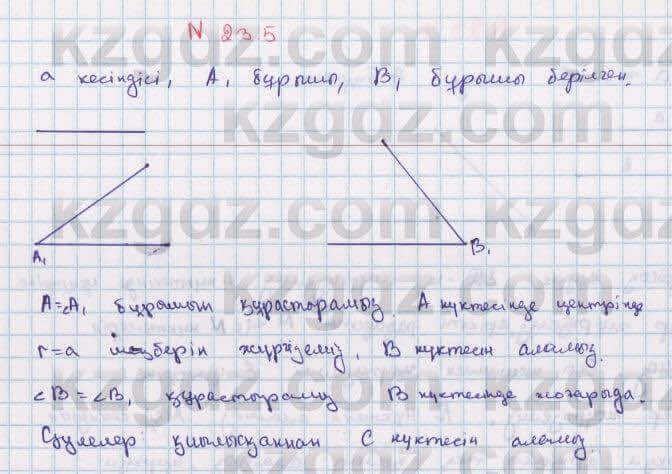 N 235
kzgdz.com
а кесіндісі, A₁ бұрышы, B₁ бұрышы берілген.
kzgdz.com
A₁
B₁
A=∠A₁ бұрышын құрастырамыз. A нүктесінде центрінде
r=a шеңберін жүргіземіз, B нүктесін аламыз.
∠B=∠B₁ құрастырамыз B нүктесінде жоғарыда.
Сәулелер қиылысқаннан C нүктесін аламыз.